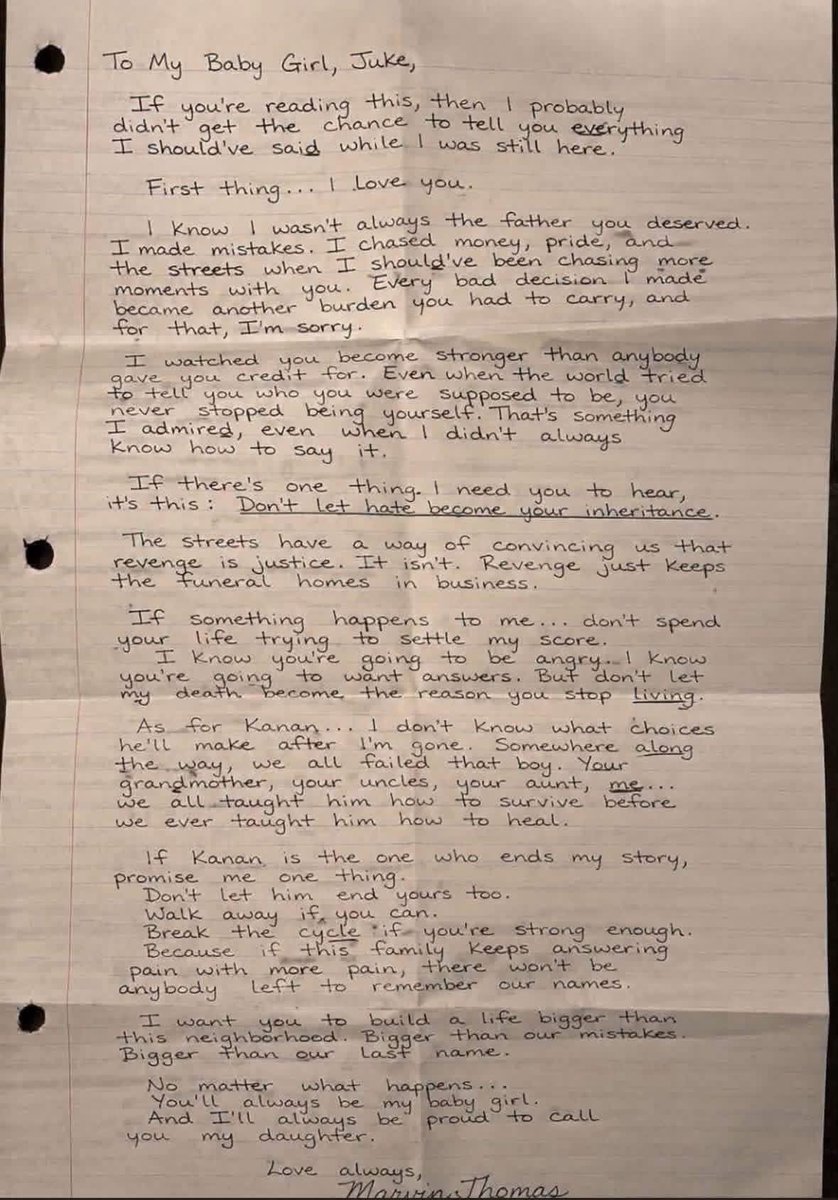 To My Baby Girl, Juke,
If you're reading this, then I probably
didn't get the chance to tell you everything
I should've said while I was still here.
First thing... I love you.
I know I wasn't always the father you deserved.
I made mistakes. I chased money, pride, and
the streets when I should've been chasing more
moments with you. Every bad decision I made
became another burden you had to carry, and
for that, I'm sorry.
I watched you become stronger than anybody
gave you credit for. Even when the world tried
to tell you who you were supposed to be, you
never stopped being yourself. That's something
I admired, even when I didn't always
know how to say it.
If there's one thing I need you to hear,
it's this: Don't let hate become your inheritance.
The streets have a way of convincing us that
revenge is justice. It isn't. Revenge just keeps
the funeral homes in business.
If something happens to me... don't spend
your life trying to settle my score.
I know you're going to be angry. I know
you're going to want answers. But don't let
my death become the reason you stop living.
As for Kanan... I don't know what choices
he'll make after I'm gone. Somewhere along
the way, we all failed that boy. Your
grandmother, your uncles, your aunt, me...
we all taught him how to survive before
we ever taught him how to heal.
If Kanan is the one who ends my story,
promise me one thing.
Don't let him end yours too.
Walk away if you can.
Break the cycle if you're strong enough.
Because if this family keeps answering
pain with more pain, there won't be
anybody left to remember our names.
I want you to build a life bigger than
this neighborhood. Bigger than our mistakes.
Bigger than our last name.
No matter what happens...
You'll always be my baby girl.
And I'll always be proud to call
you my daughter.
Love always,
Marvin Thomas